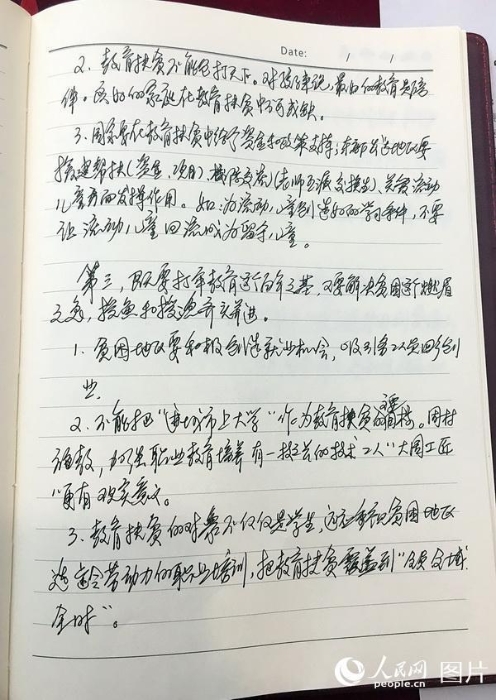 Date: / /
2、教育扶贫不能包打天下。对孩子来说，最好的教育是陪
伴。良好的家庭在教育扶贫中不可或缺。
3、国家要在教育扶贫中给予资金和政策支持；东部发达地区要
搭建帮扶（资金、项目）、横向交流（老师互派交换生）、关爱流动
儿童方面发挥作用。如：为流动儿童创造好的学习条件，不要
让流动儿童回流成为留守儿童。
第三，既要打牢教育这个百年之基，又要解决贫困这个燃眉
之急，授鱼和授渔齐头并进。
1、贫困地区要积极创造就业机会，吸引务工人员回乡创
业。
2、不能把“进城市上大学”作为教育扶贫的主要目标。因材
施教，办好职业教育培养有一技之长的技术工人“大国工匠
”更有现实意义。
3、教育扶贫的对象不仅仅是学生，还应重视贫困地区
适龄劳动力的职业培训，把教育扶贫覆盖到“全员全域
全时”。
人民网 图片
people.cn